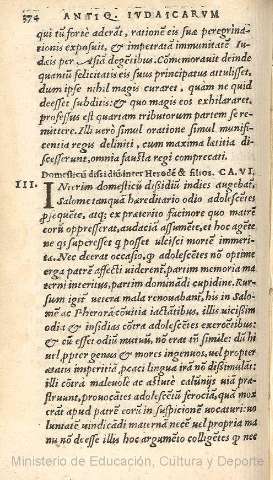 374 ANTIQ. IVDAICARVM
qui tũ fortè aderãt, rationẽ eis suæ peregrina-
tionis exposuit, & impetratã immunitatẽ Iu-
dæis per Asiã degẽtibus. Cõmemorauit deinde
quantũ felicitatis eis suus principatus attulisset,
dum ipse nihil magis curaret, quàm ne quid
deesset subditis: & quo magis eos exhilararet,
professus est quartam tributorum partem se re-
mittere. Illi verò simul oratione simul munifi-
centia regis deliniti, cum maxima lætitia di-
scesserunt, omnia fausta regi comprecati.
Domesticũ dissidiũ inter Herodẽ & filios. CA. VI.
III. INterim domesticũ dissidiũ indies augebat,
Salome tanquã hæreditario odio adolescẽtes
ꝓsequẽte, atq; ex præterito facinore quo matrẽ
eorũ oppresserat, audaciã assumẽte, et hoc agẽte,
ne qs superesset q posset vlcisci mortẽ immeri-
ta. Nec deerat occasio, q adolescẽtes nõ optimè
erga patrẽ affecti viderent, partim memoria ma
terni interitus, partim dominãdi cupidine. Rur-
sum igit vetera mala renouabant, his in Salo-
mẽ ac Pherorã cõuitia iactãtibus, illis vicissim
odia & insidias cõtra adolescẽtes exercẽtibus:
& cũ esset odiũ mutuũ, nõ erat in simile: dũ hi
vel ꝓpter genus & mores ingenuos, vel propter
ætatis imperitiã, pcaci lingua irã nõ dissimulãt:
illi cõtrà maleuolè ac astutè calũnijs viã præ-
struunt, prouocãtes adolescẽtiũ ferociã, quã mox
crãt apud patrẽ eorũ in suspicionẽ vocaturi: vo
luntatẽ vindicãdi materna necẽ vel propria ma
nu nõ deesse illis hoc argumẽto colligẽtes q nec
Ministerio de Educación, Cultura y Deporte